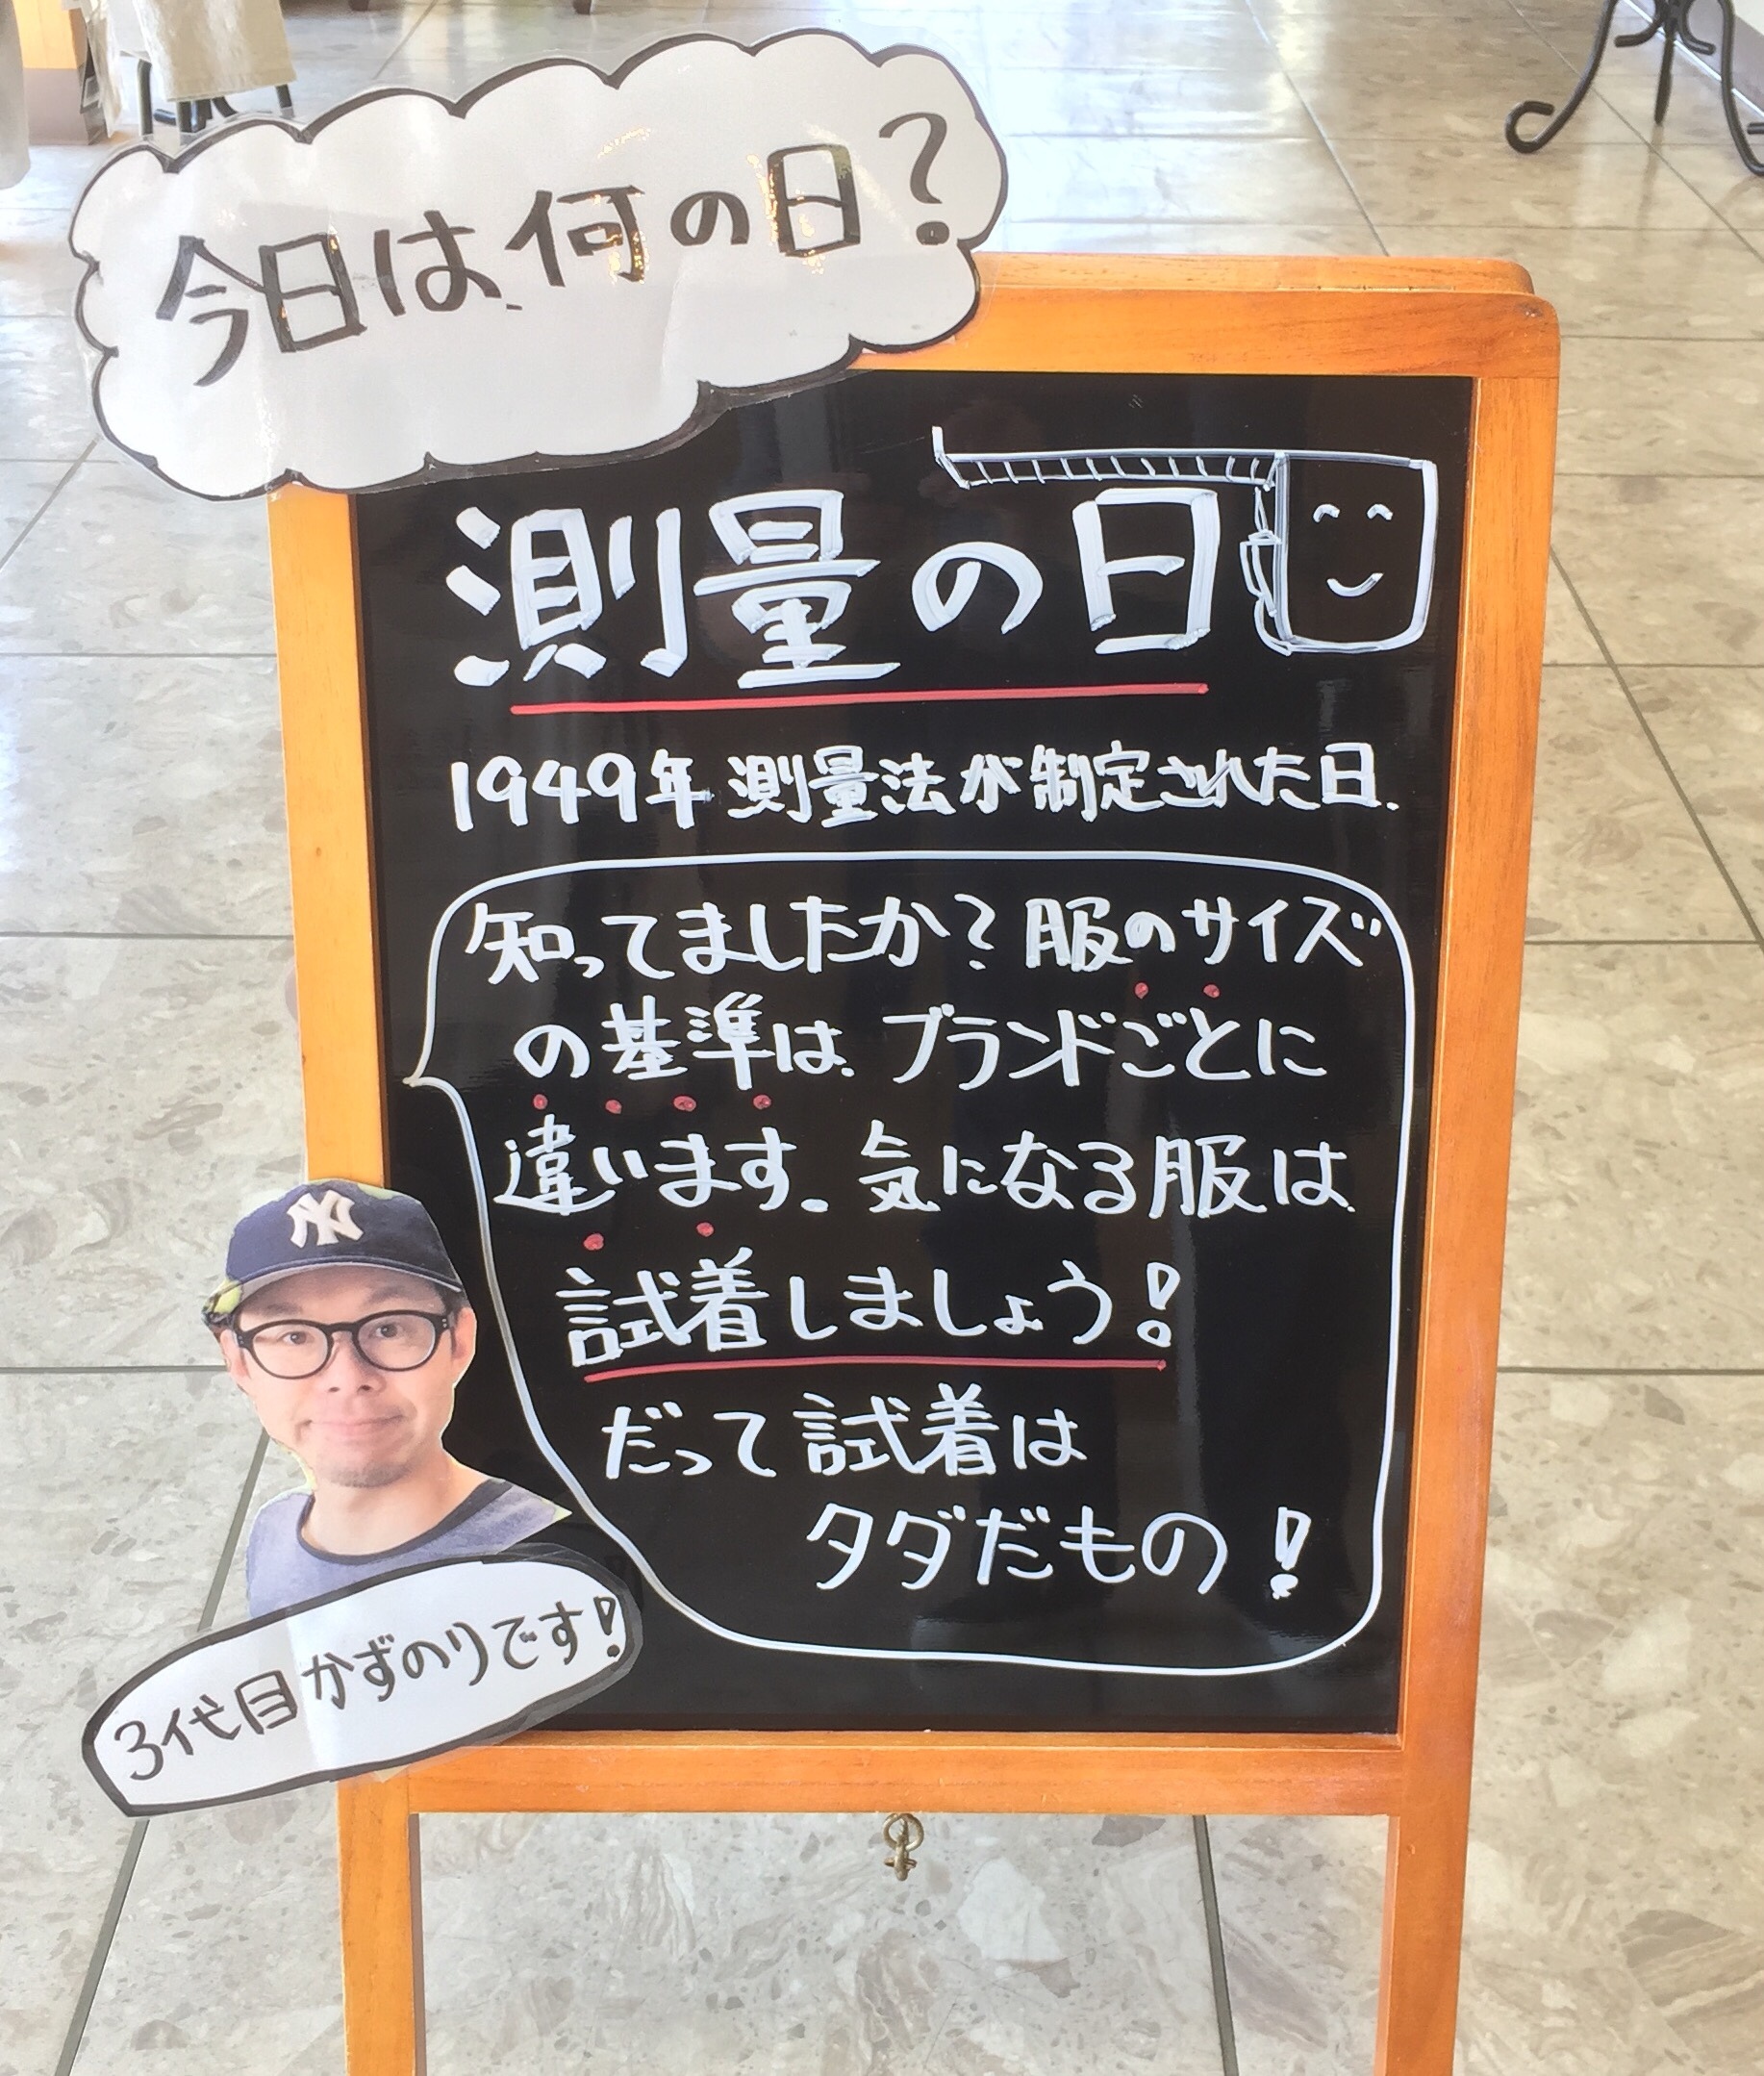 今日は何の日?
測量の日
1949年 測量法が制定された日.
知ってましたか?服のサイズ
の基準は、ブランドごとに
違います。気になる服は
試着しましょう!
だって試着は
タダだもの!
NY
3代目かずのりです!